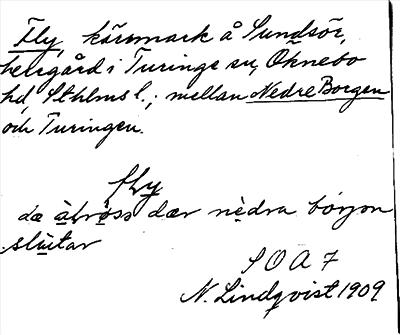 Fly, kärrmark å Sundsör,
herrgård i Turinge sn, Öknebo
hd, Sthlms l.; mellan Nedre Borgen
och Turingen.
fly
dæ ä̀brøss dær nèdra bórjon
slùtar
S O A 7
N. Lindqvist 1909